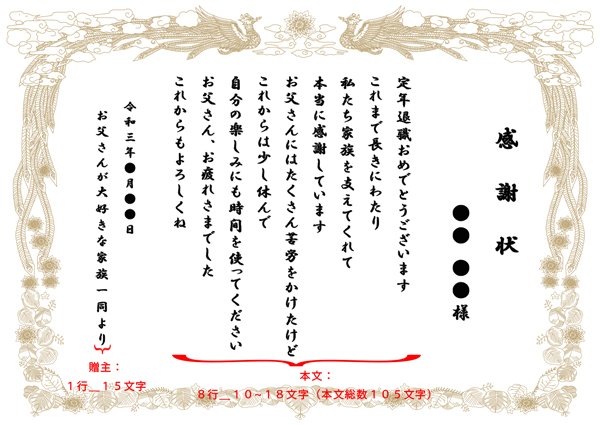 感謝状
●● ●●様
定年退職おめでとうございます
これまで長きにわたり
私たち家族を支えてくれて
本当に感謝しています
お父さんにはたくさん苦労をかけたけど
これからは少し休んで
自分の楽しみにも時間を使ってください
お父さん、お疲れさまでした
これからもよろしくね
令和三年●月●●日
お父さんが大好きな家族一同より
本文：
８行＿１０~１８文字（本文総数１０５文字）
贈主：
１行＿１５文字